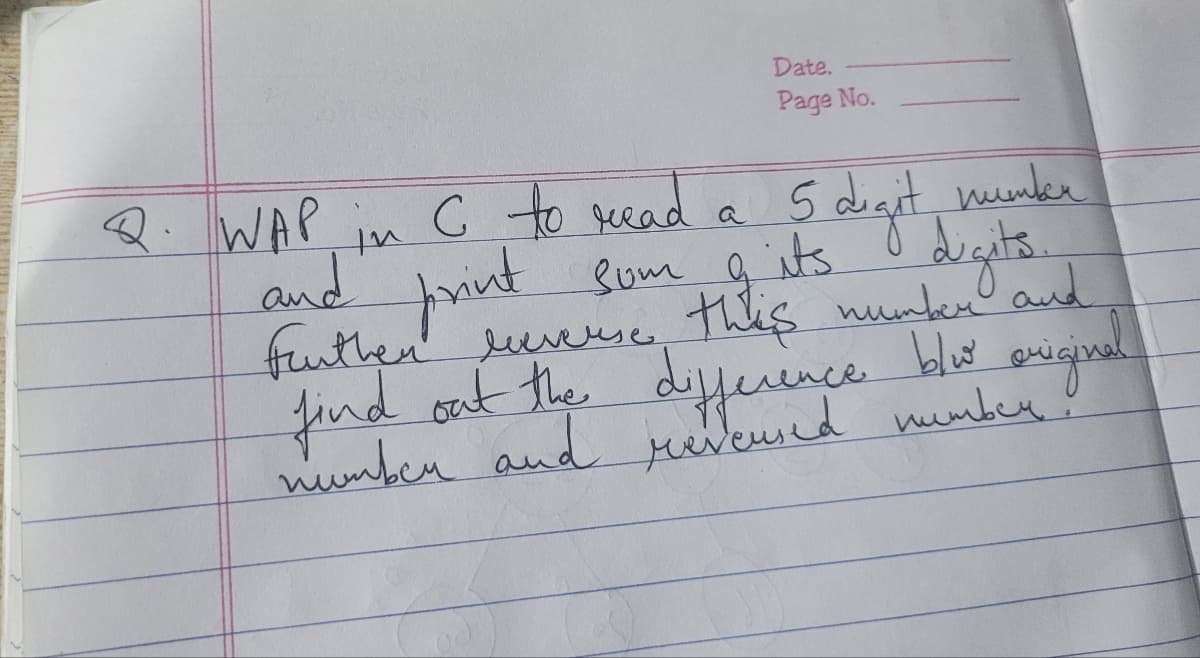 Date.
Page No.
Q. WAP in C to read a 5 digit number
and print sum of its digits.
further reverse this number and
find out the difference b/w original
number and reversed number.